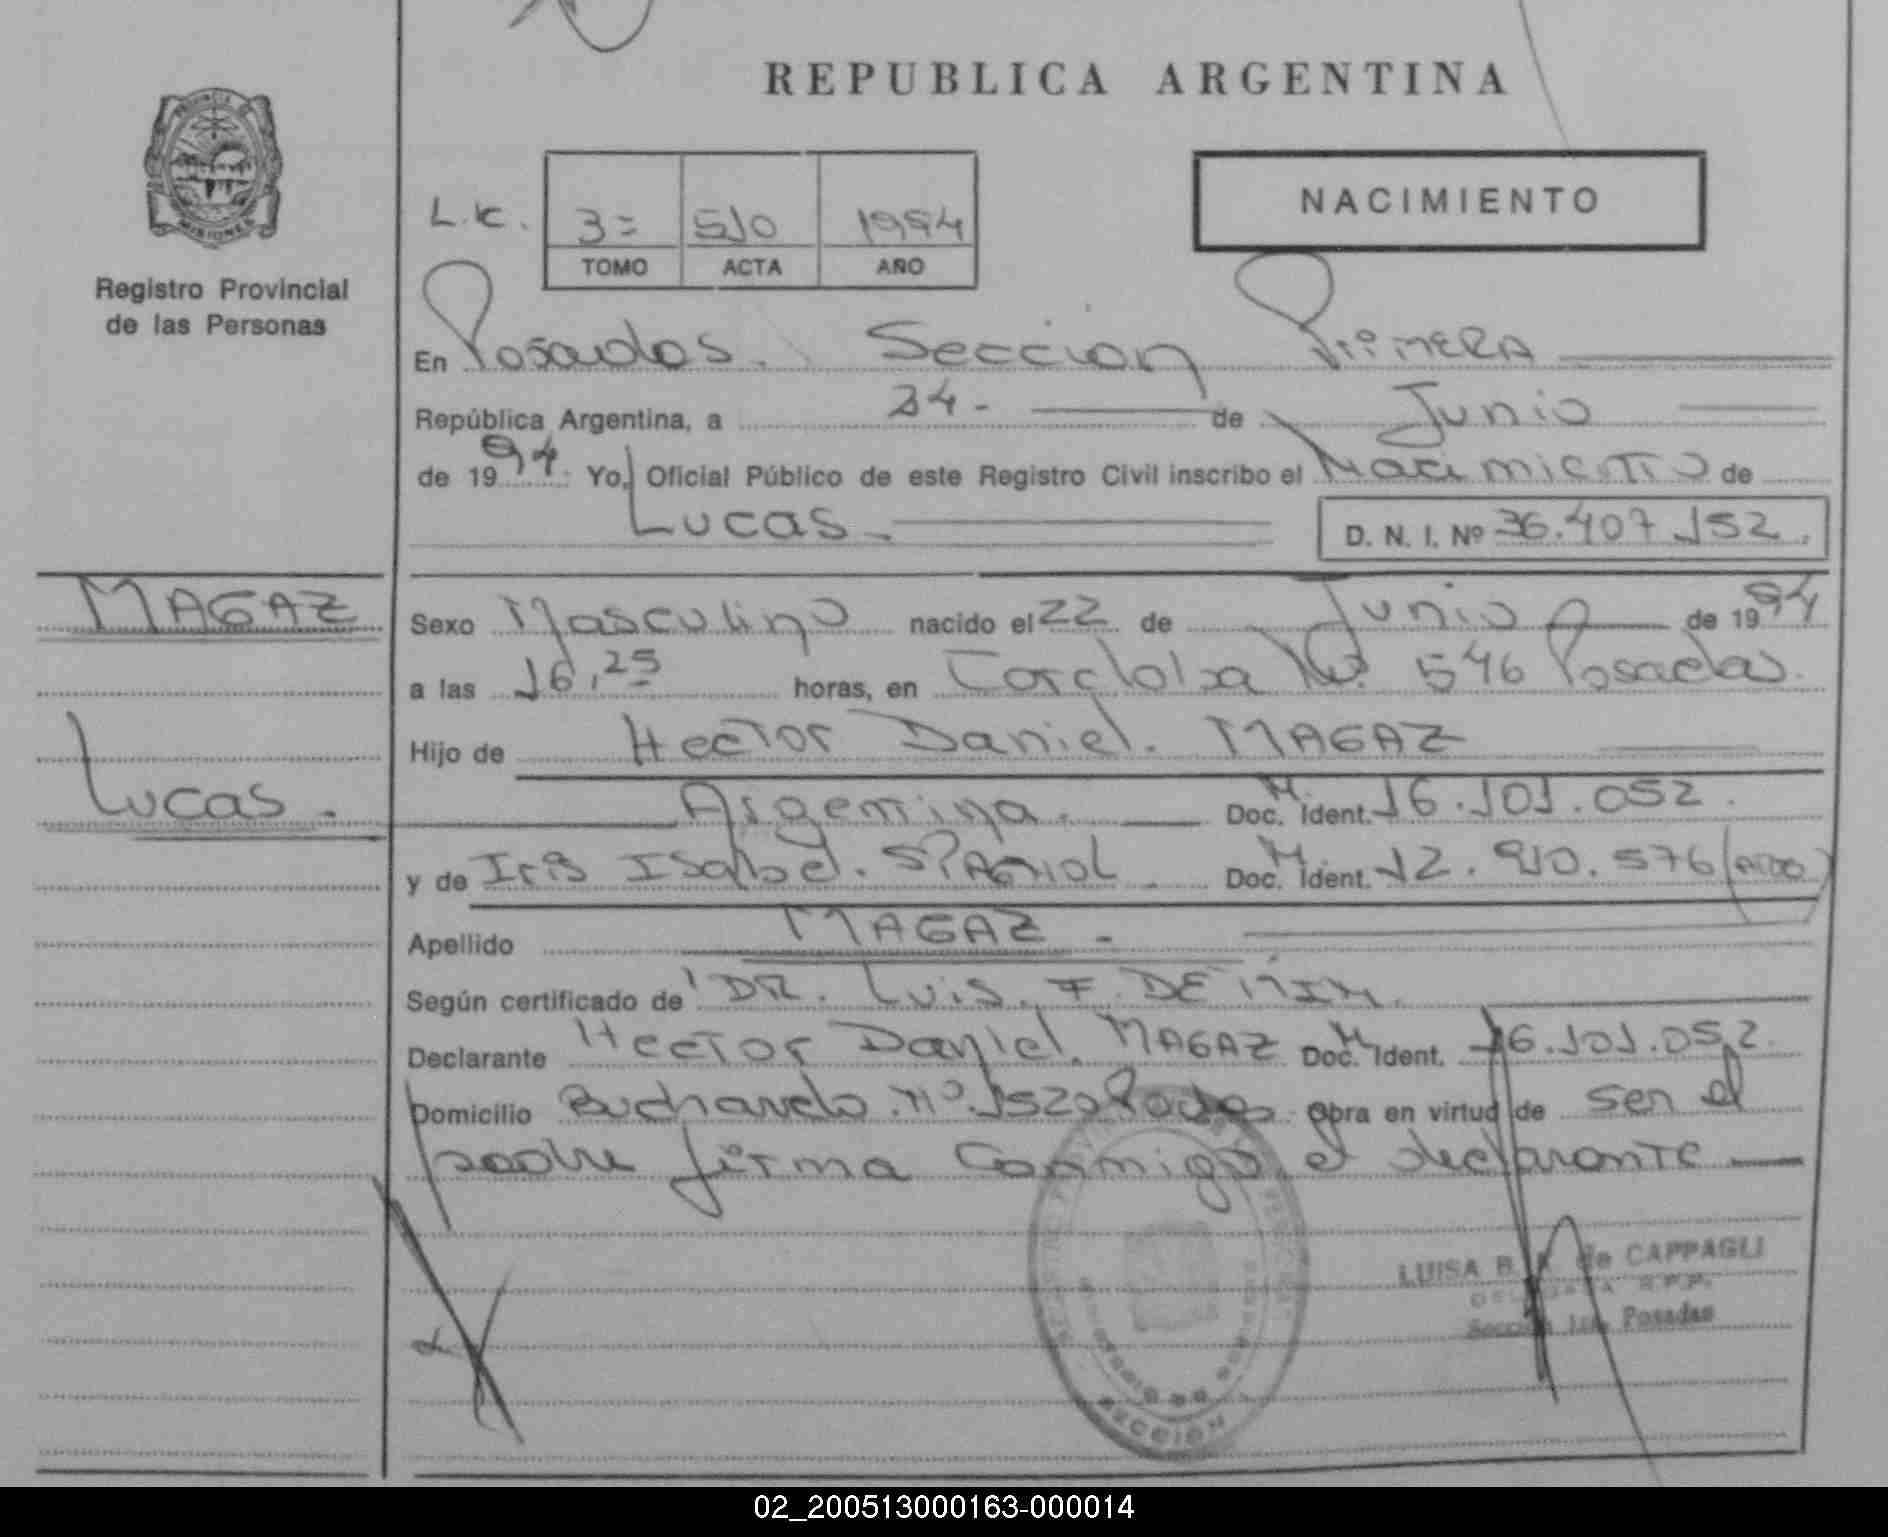 REPUBLICA ARGENTINA
PROVINCIA DE
MISIONES
Registro Provincial
de las Personas
NACIMIENTO
L.K. 3= 510 1994
TOMO ACTA AÑO
En Posadas. Seccion Primera
República Argentina, a 24- de Junio
de 1994. Yo, Oficial Público de este Registro Civil inscribo el Nacimiento de
Lucas.
D. N. I. Nº 36.407.152.
MAGAZ
Lucas.
Sexo Masculino nacido el 22 de Junio de 1994
a las 16,25 horas, en Cordoba Nº. 546 Posadas.
Hijo de Hector Daniel. MAGAZ
Argentina. Doc. M. Ident. 16.101.052.
y de Iris Isabel. Doc. M. Ident. 12.910.576
Apellido MAGAZ.
Según certificado de DR. Luis. F.
Declarante Hector Daniel. MAGAZ Doc. M. Ident. 16.101.052.
Domicilio Buchardo. Nº. 1520 Obra en virtud de ser el
padre firma Conmigo el declarante
LUISA B. de CAPPAGLI
DELEGADA R.P.P.
Sección 1ra. Posadas
SECCION 1
02_200513000163-000014